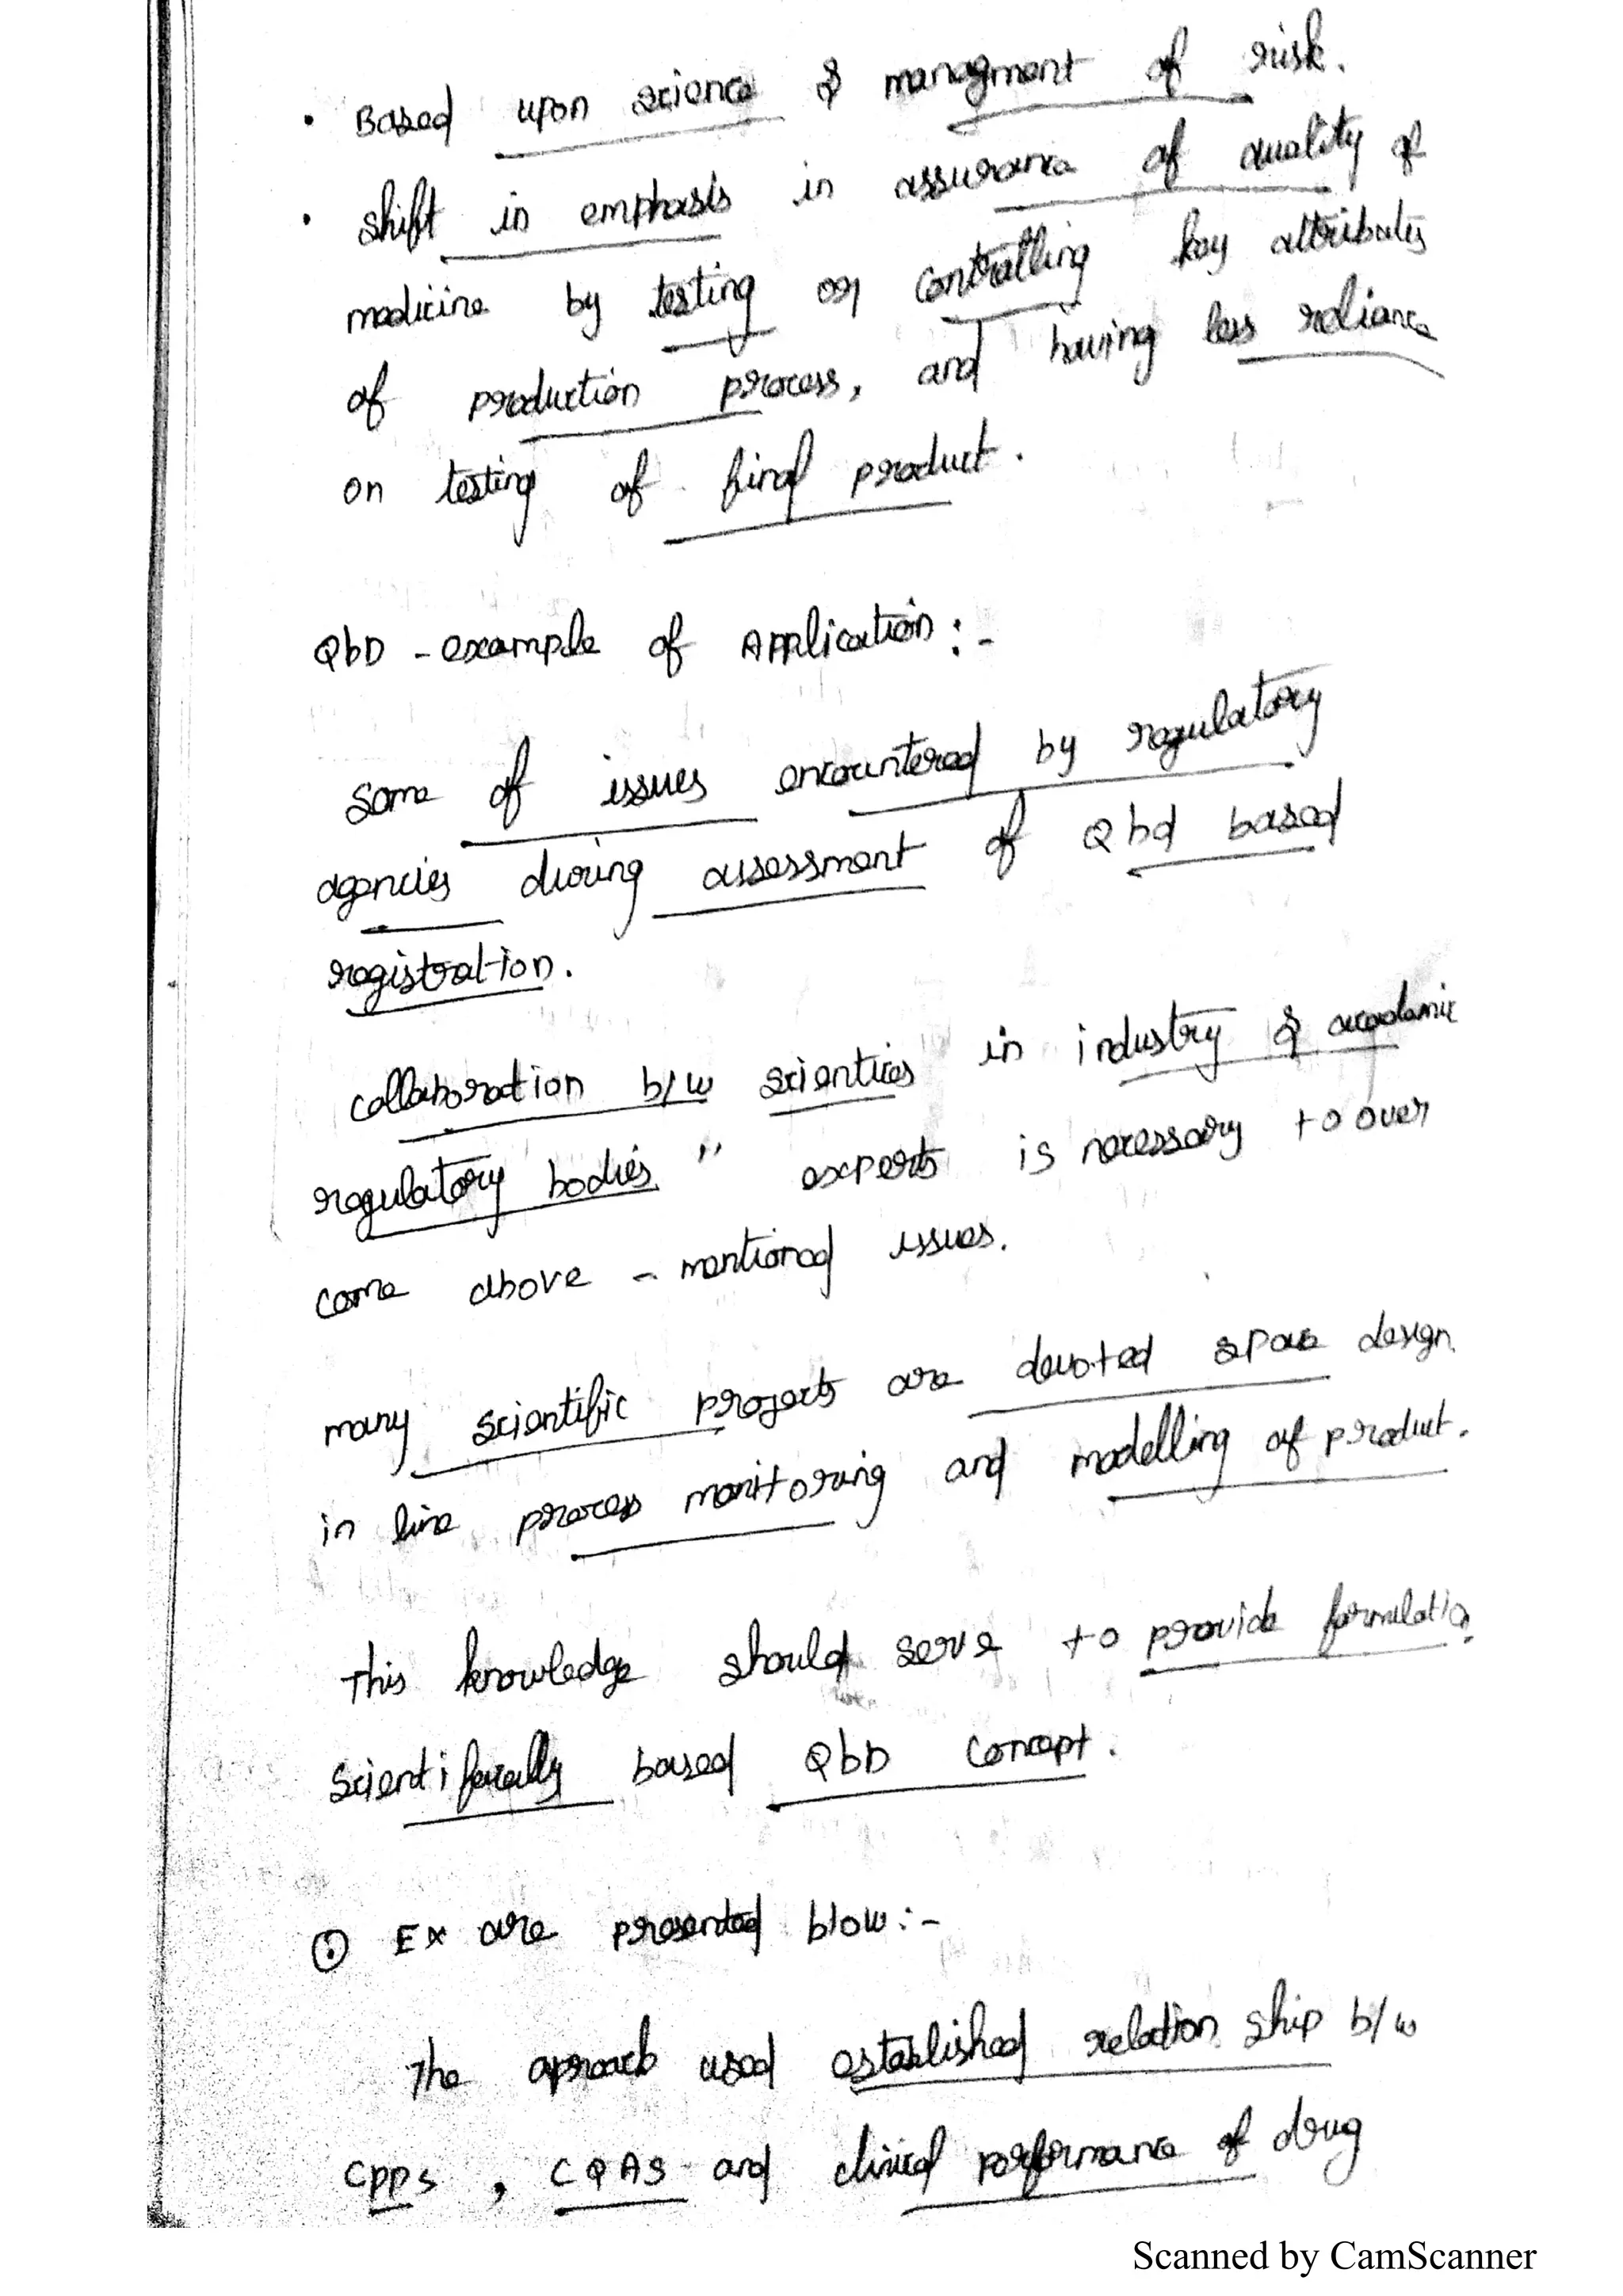 • Based upon science & managment of risk.
• shift in emphasis in assurance of quality of
medicine by testing or controlling key attributes
of production process, and having less reliance
on testing of final product.
QbD - example of Application:-
Some of issues encountered by regulatory
agencies during assessment of Qbd based
registration.
collaboration b/w scienties in industry & academic
regulatory bodies " experts is necessary to over
come above - mentioned issues.
many scientific projects are devoted space design
in line process monitoring and modelling of product.
This knowledge should serve to provide formulatio
Scientifically based QbD concept.
Ex are presented blow:-
The aproach used established relation ship b/w
CPPs, CQAS and clinical performance of drug
Scanned by CamScanner